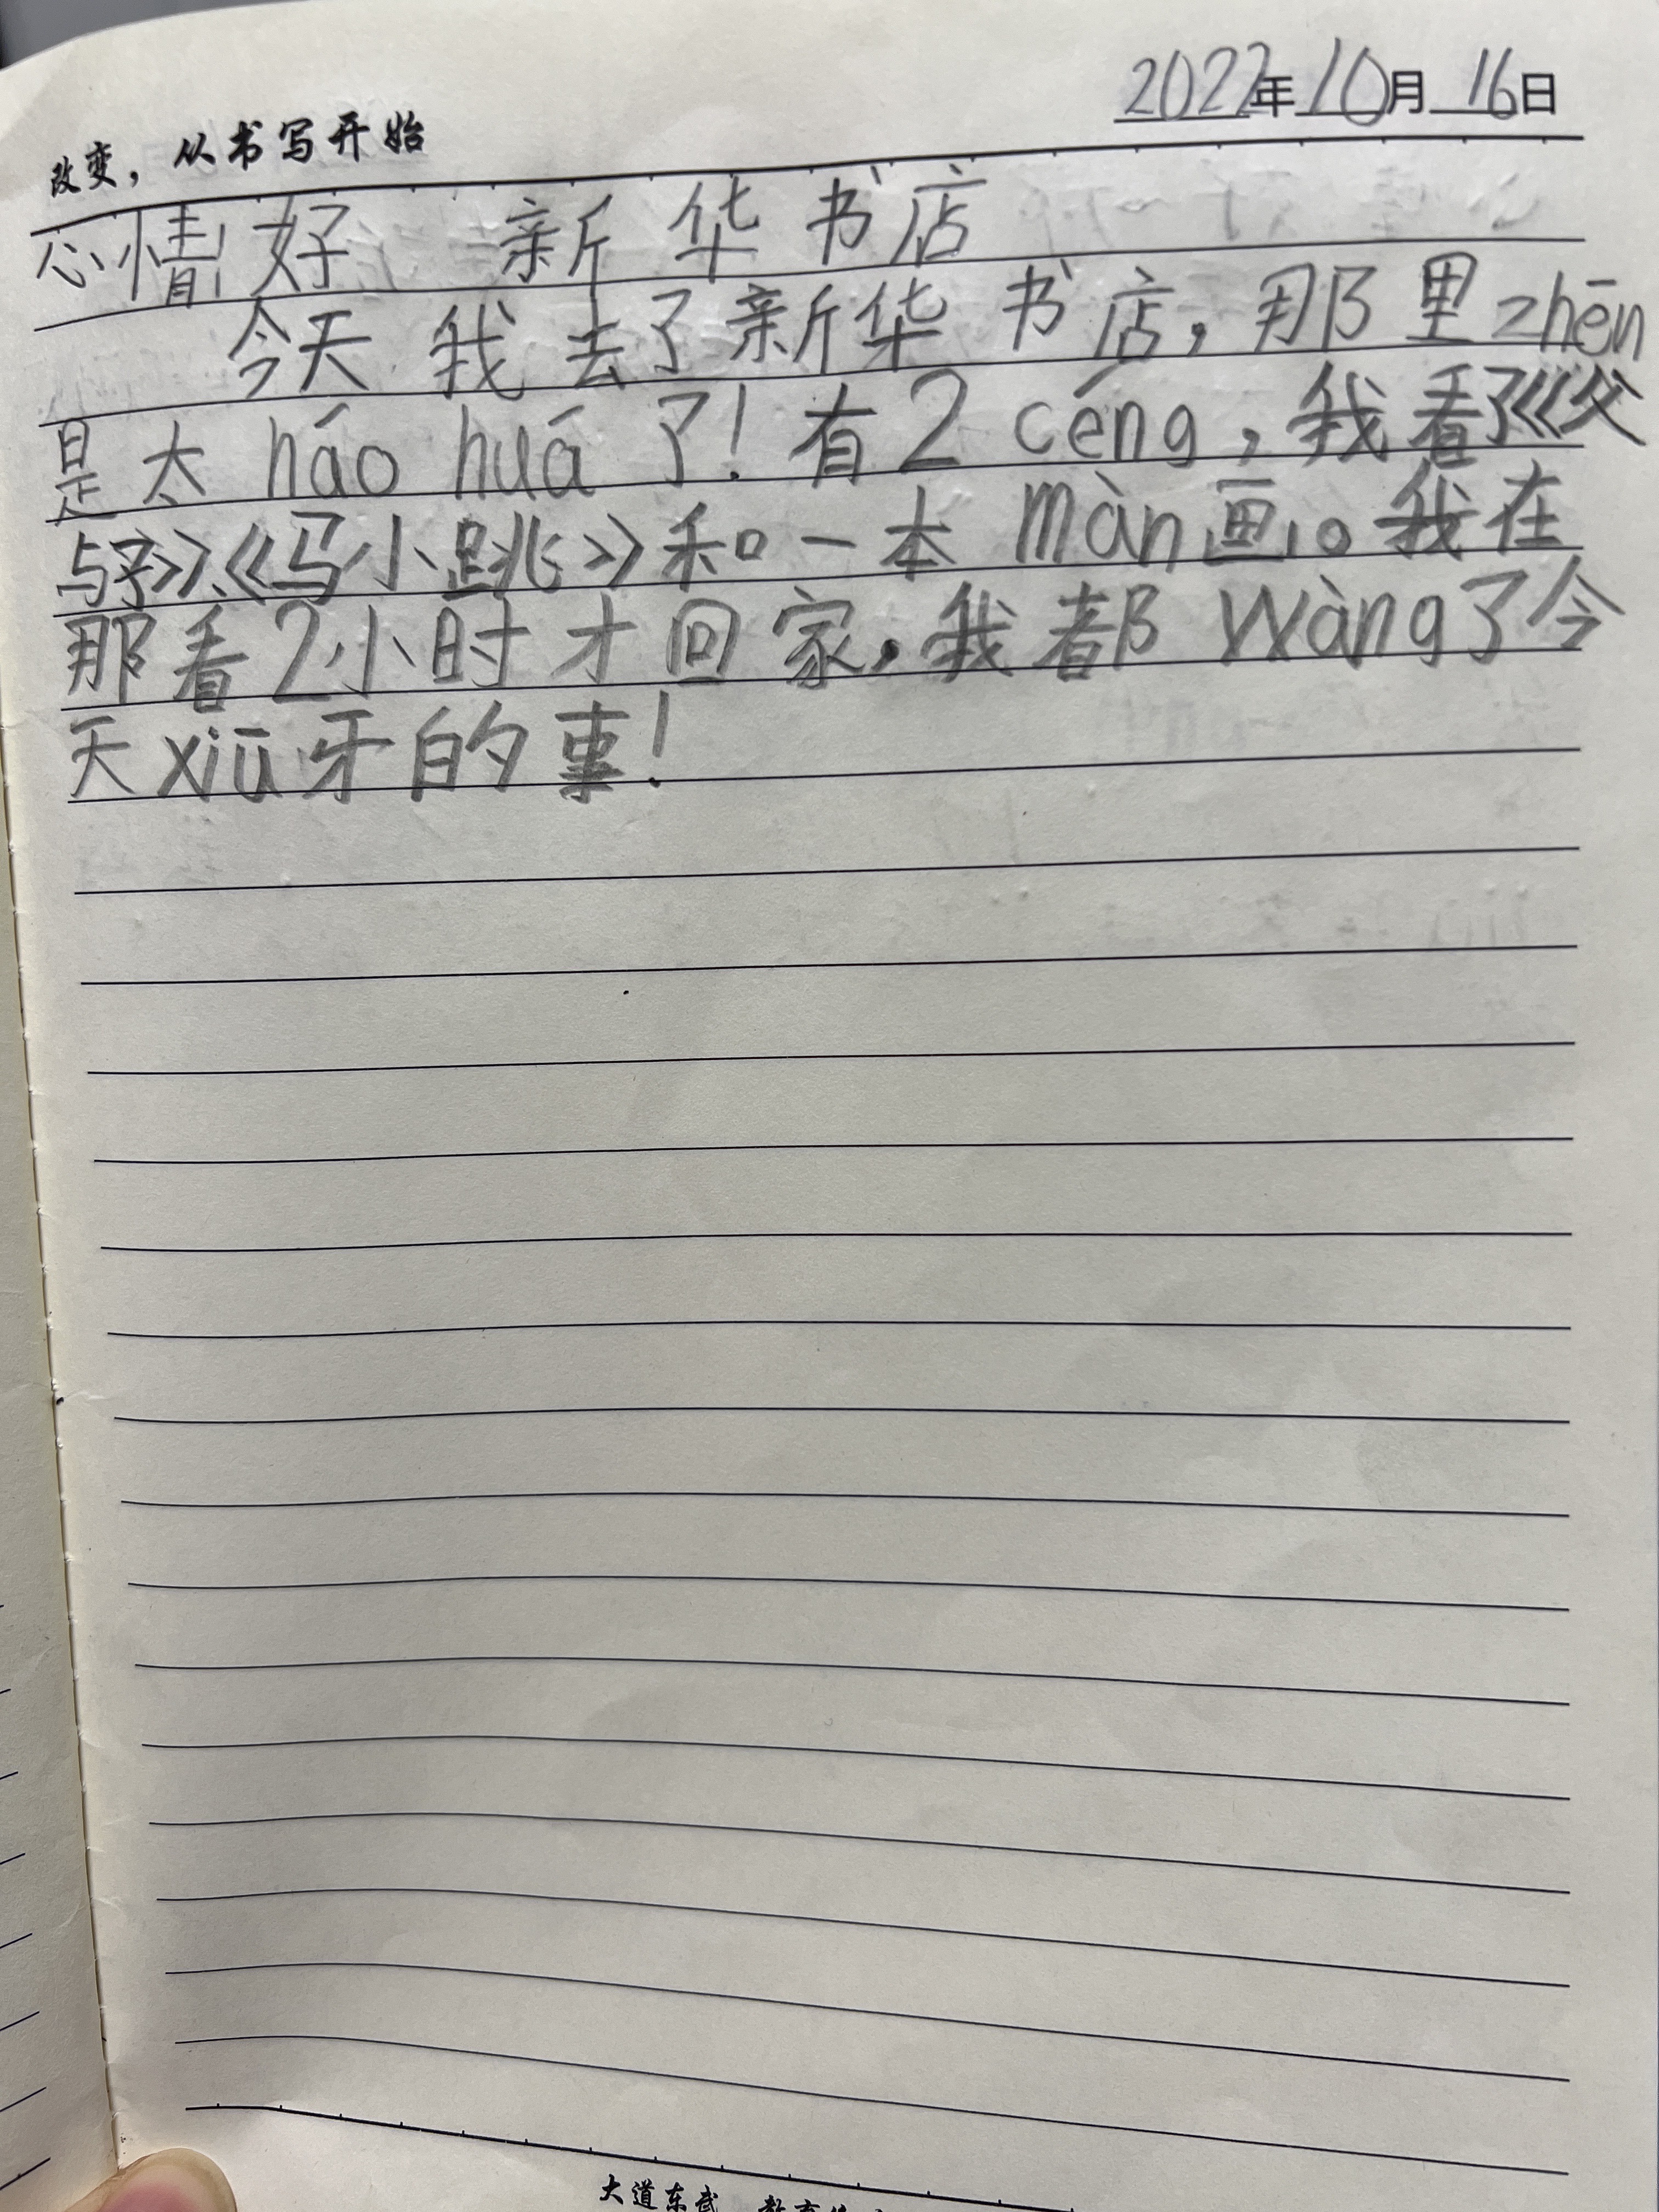 2022年10月16日
改变，从书写开始
心情好 新华书店
今天我去了新华书店，那里zhēn
是太háo huá了！有2céng，我看了《父
与子》、《马小跳》和一本màn画。我在
那看2小时才回家，我都wàng了今
天xiū牙的事！
大道东武